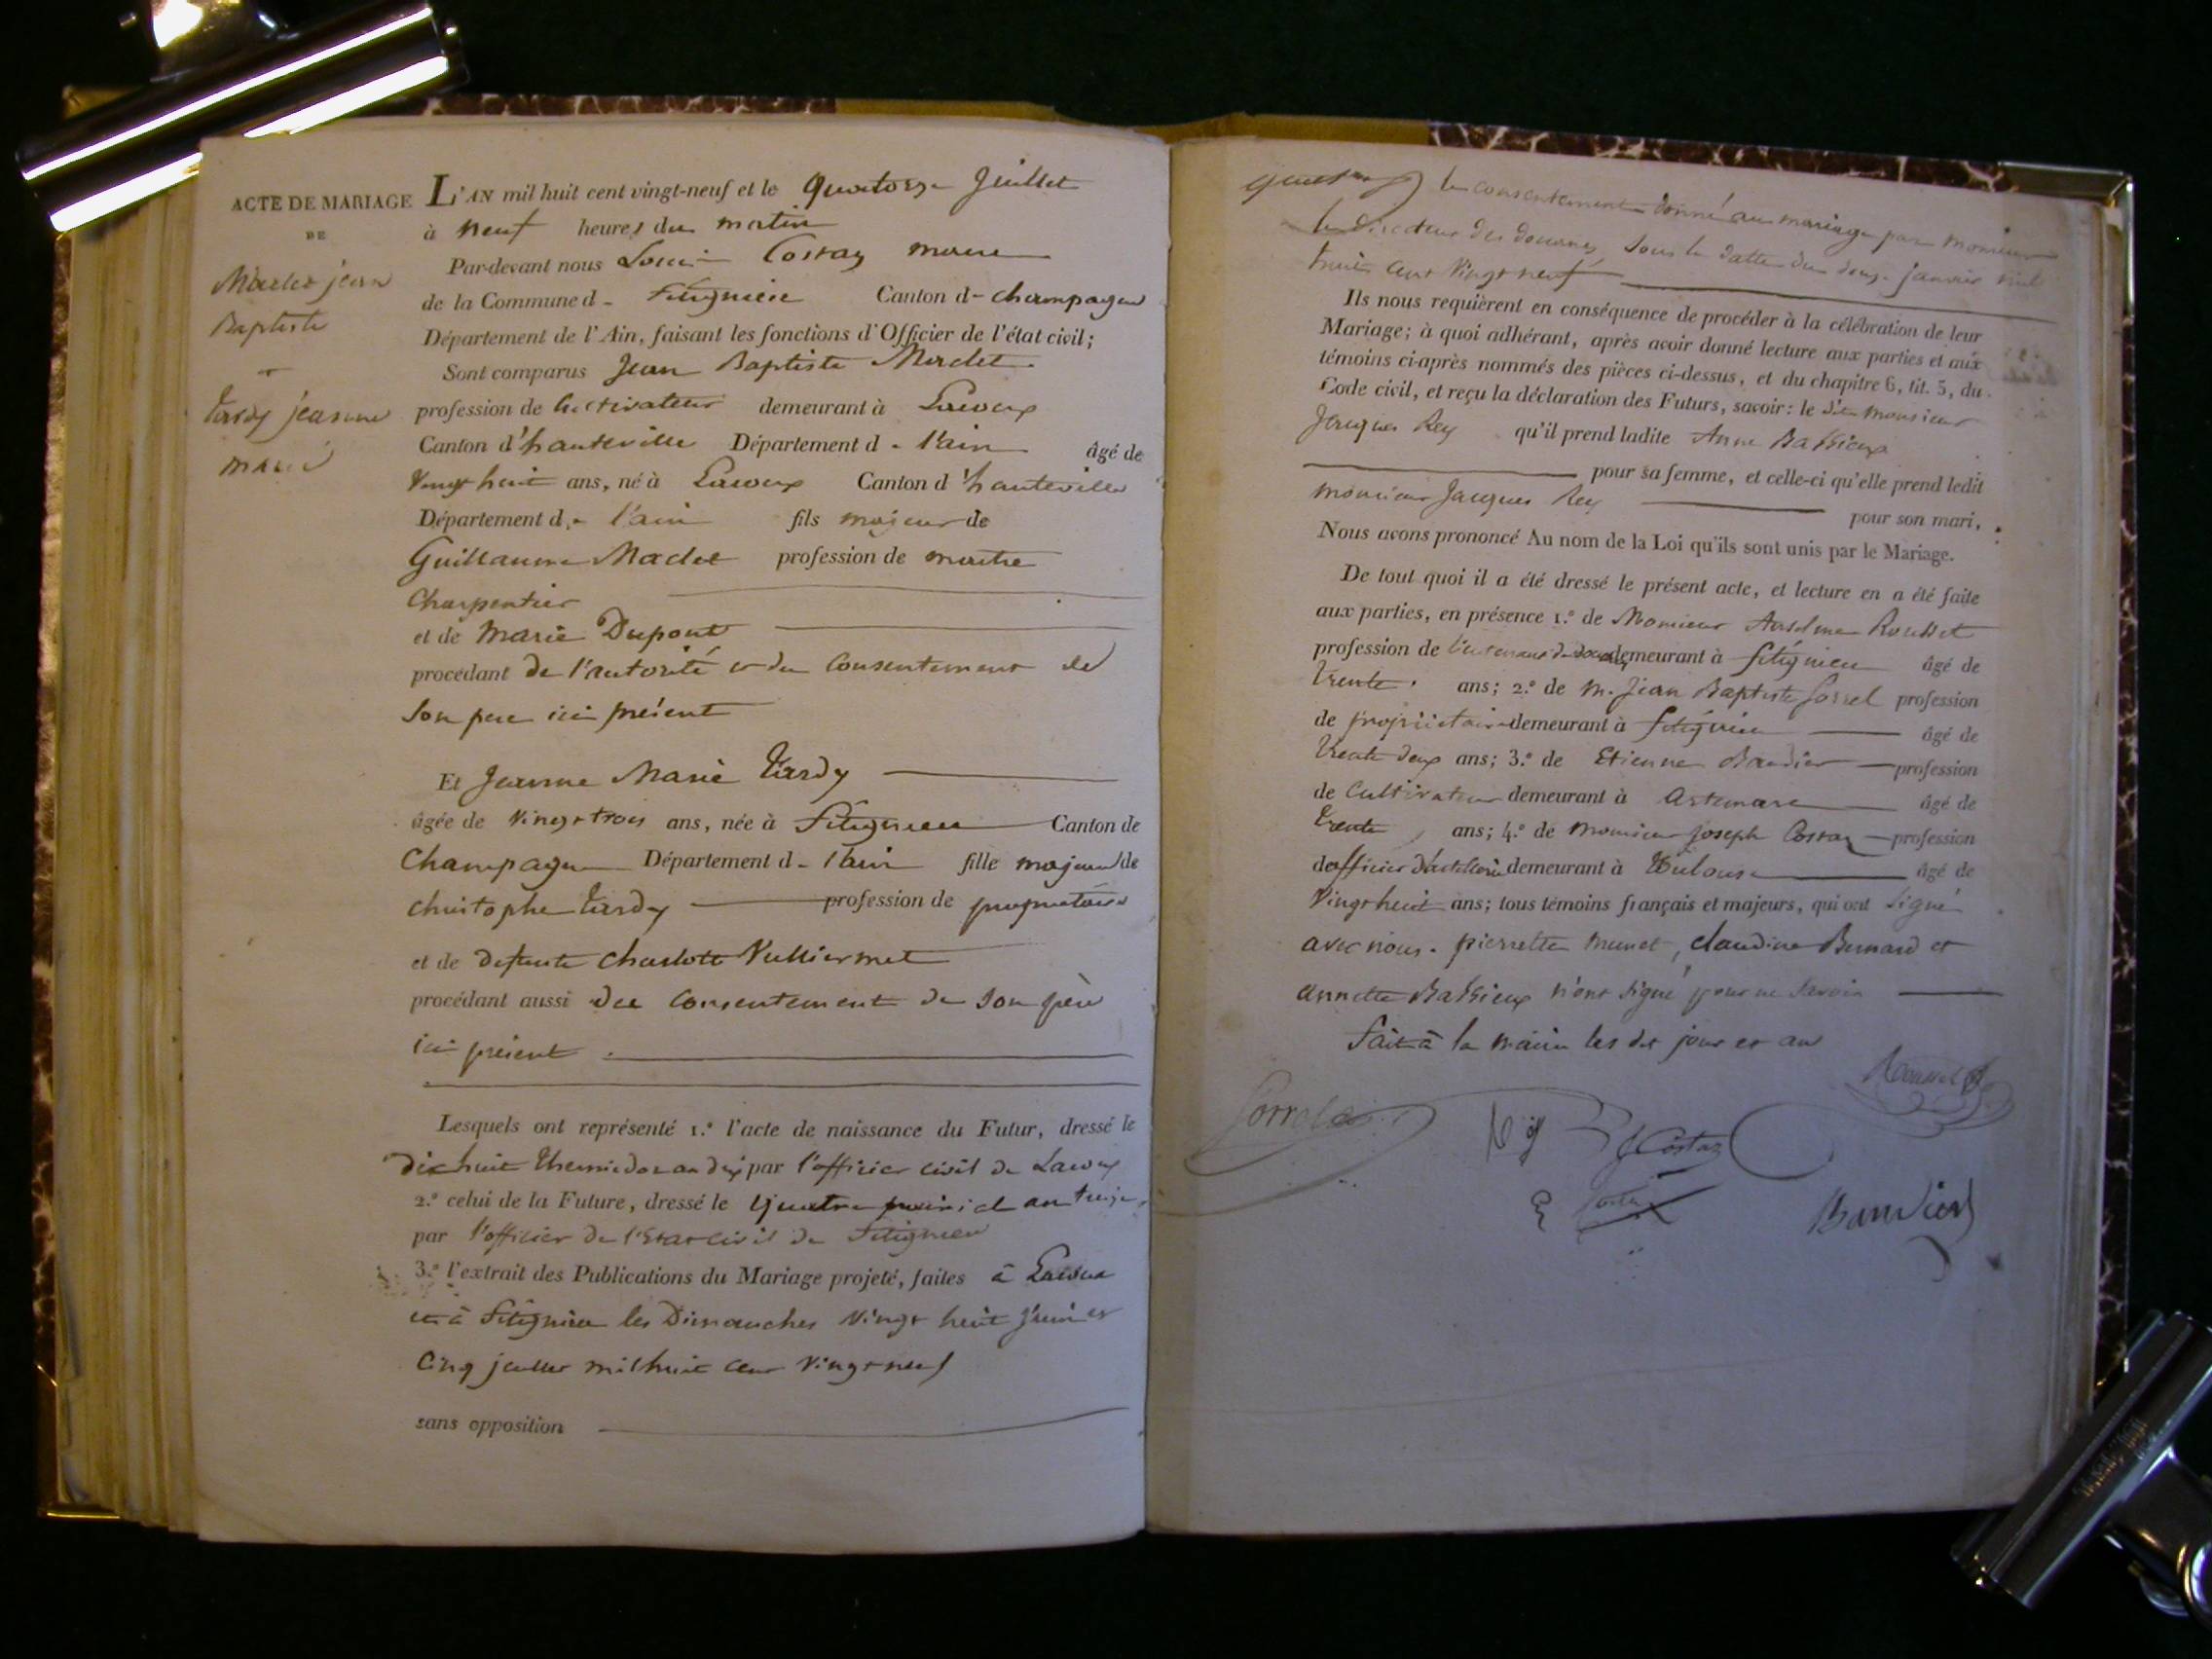 ACTE DE MARIAGE
DE
Maclet jean
Baptiste
et
Tardy jeanne
marie
L'AN mil huit cent vingt-neuf et le quatorze Juillet
à neuf heures du matin
Par-devant nous Louis Costaz maire
de la Commune d- Fitignieu Canton d- champagne
Département de l'Ain, faisant les fonctions d'Officier de l'état civil;
Sont comparus Jean Baptiste Maclet
profession de Cultivateur demeurant à Lacoux
Canton d'hauteville Département d- l'ain âgé de
Vingt huit ans, né à Lacoux Canton d'hauteville
Département d- l'ain fils majeur de
Guillaume Maclet profession de maitre
Charpentier
et de Marie Dupont
procédant de l'autorité et du Consentement de
Son pere ici présent
Et Jeanne Marie Tardy
âgée de Vingt trois ans, née à Fitignieu Canton de
Champagne Département d- l'ain fille majeure de
christophe Tardy profession de propriétaire
et de defunte Charlotte Vulliermet
procédant aussi du Consentement de Son père
ici présent
Lesquels ont représenté 1.º l'acte de naissance du Futur, dressé le
dix huit thermidor an dix par l'officier civil de Lacoux
2.º celui de la Future, dressé le quatre prairial an treize
par l'officier de l'Etat civil de Fitignieu
3.º l'extrait des Publications du Mariage projeté, faites à Lacoux
et à Fitignieu les Dimanches Vingt huit juin et
Cinq juillet mil huit cent Vingt neuf
sans opposition
le consentement donné au mariage par monsieur
le directeur des douanes, sous la datte du douze janvier mil
huit cent Vingt neuf
Ils nous requièrent en conséquence de procéder à la célébration de leur
Mariage; à quoi adhérant, après avoir donné lecture aux parties et aux
témoins ci-après nommés des pièces ci-dessus, et du chapitre 6, tit. 5, du
Code civil, et reçu la déclaration des Futurs, savoir: le dit monsieur
Jacques Rey qu'il prend ladite Anne Bassieux
pour sa femme, et celle-ci qu'elle prend ledit
monsieur Jacques Rey pour son mari.
Nous avons prononcé Au nom de la Loi qu'ils sont unis par le Mariage.
De tout quoi il a été dressé le présent acte, et lecture en a été faite
aux parties, en présence 1.º de Monsieur Anselme Rousset
profession de lieutenant de douanes demeurant à fitignieu âgé de
trente ans; 2.º de M. Jean Baptiste Sorrel profession
de propriétaire demeurant à fitignieu âgé de
trente deux ans; 3.º de Etienne Baudier profession
de Cultivateur demeurant à Artemare âgé de
trente ans; 4.º de Monsieur joseph Costaz profession
d'officier d'artillerie demeurant à Toulouse âgé de
Vingt huit ans; tous témoins français et majeurs, qui ont signé
avec nous. pierrette munet, claudine Bernard et
annette Bassieux n'ont signé pour ne savoir
fait à la mairie les dit jour et an
Rey
J Costaz